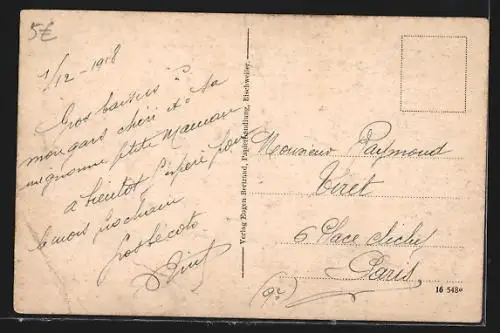 5€
1/12-1918
Gros baisers à
mon gars chéri et à ta
mignonne petite Maman
a bientôt j'espère pour
le mois prochain
Verlag Eugen Bertrand, Papierhandlung, Eschweiler.
Monsieur Raymond
Viret
6 Place Clichy
Paris
16 548